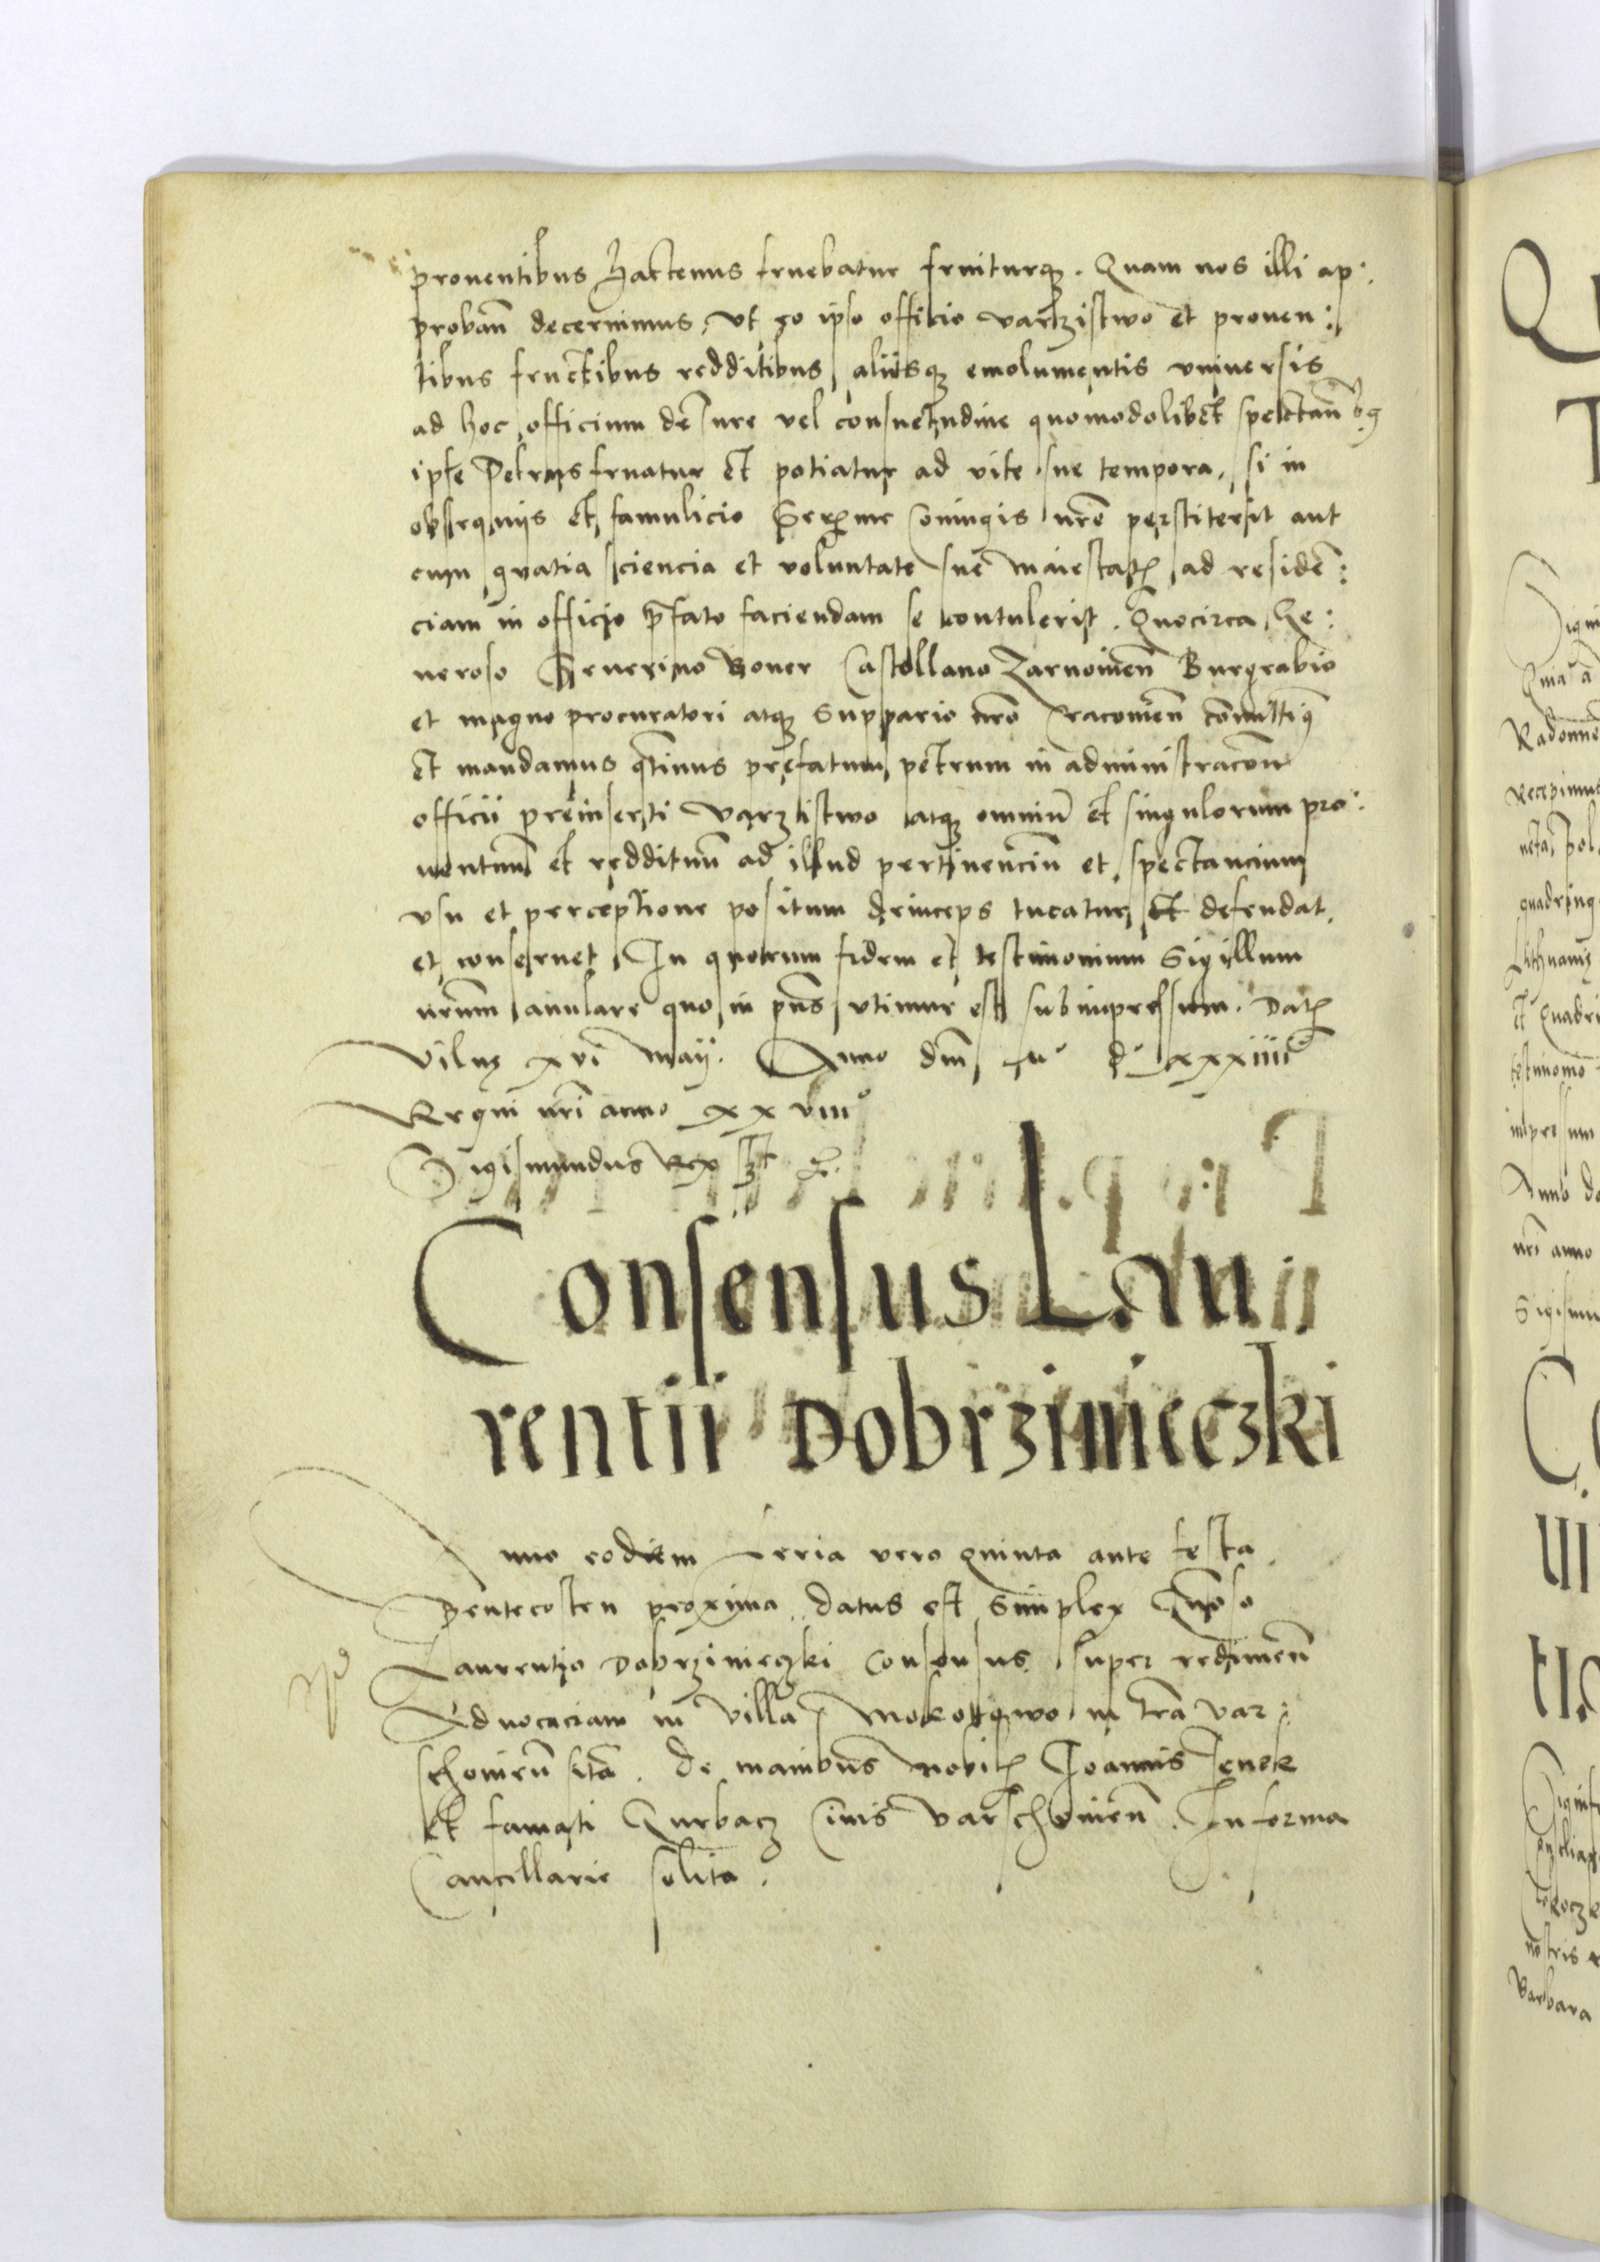 proventibus hactenus fruebatur fruiturq̃. Quam nos illi ap:
probañ decernimus, Ut eo ipso officio varzistwo et proven:
tibus fructibus redditibus, aliisq̃ emolumentis universis
ad hoc officium de iure vel consuetudine quomodolibet spectañ
ipse Petrus fruatur et potiatur ad vite sue tempora, si in
obsequiis et famulicio Serẽme Coniugis nr̃e perstiterit aut
cum gratia sciencia et voluntate sue Maiestatis ad residẽ:
ciam in officio p̃fato faciendam se contulerit. Quocirca, Ge:
neroso Severino Boner Castellano Zarnovieñ Burgrabio
et magno procuratori atq̃ Suppario nr̃o Cracovieñ
et mandamus q̃tinus prefatum petrum in administracõe
officii preinserti Varzistwo atq̃ omniũ et singulorum pro:
ventuũ et reddituũ ad illud pertinenciũ et spectancium
usu et perceptione positum deinceps tueatur et defendat,
et conservet, In quorum fidem et testimonium Sigillum
nr̃um anulare quo in p̃ns utimur est subimpressum. Dat̃
Vilnę xvi Maii. Anno dñi Mº dº xxxiiiiº
Regni nr̃i anno xxviiiº
Sigismundus Rex sszt
Consensus Lau
rentii Dobrzinieczki
Anno eodem Feria vero quinta ante festa
Pentecosten proxima, datus est Simplex Gñoso
Laurentio Dobrzinieczki Consensus super redimeñ
Advocaciam in Villa Mokotowo in tr̃a Var:
schovieñ sitã. de manibus Nobilis Joannis
et famati Civis Varschovieñ. In forma
Cancellarie solita.
Q
T
Radomie
recepimus
quadring
Lithuanię
et Quadri
testimonio
impressum
Anno do
nr̃i anno
Sigismu
C
nostris
Barbara